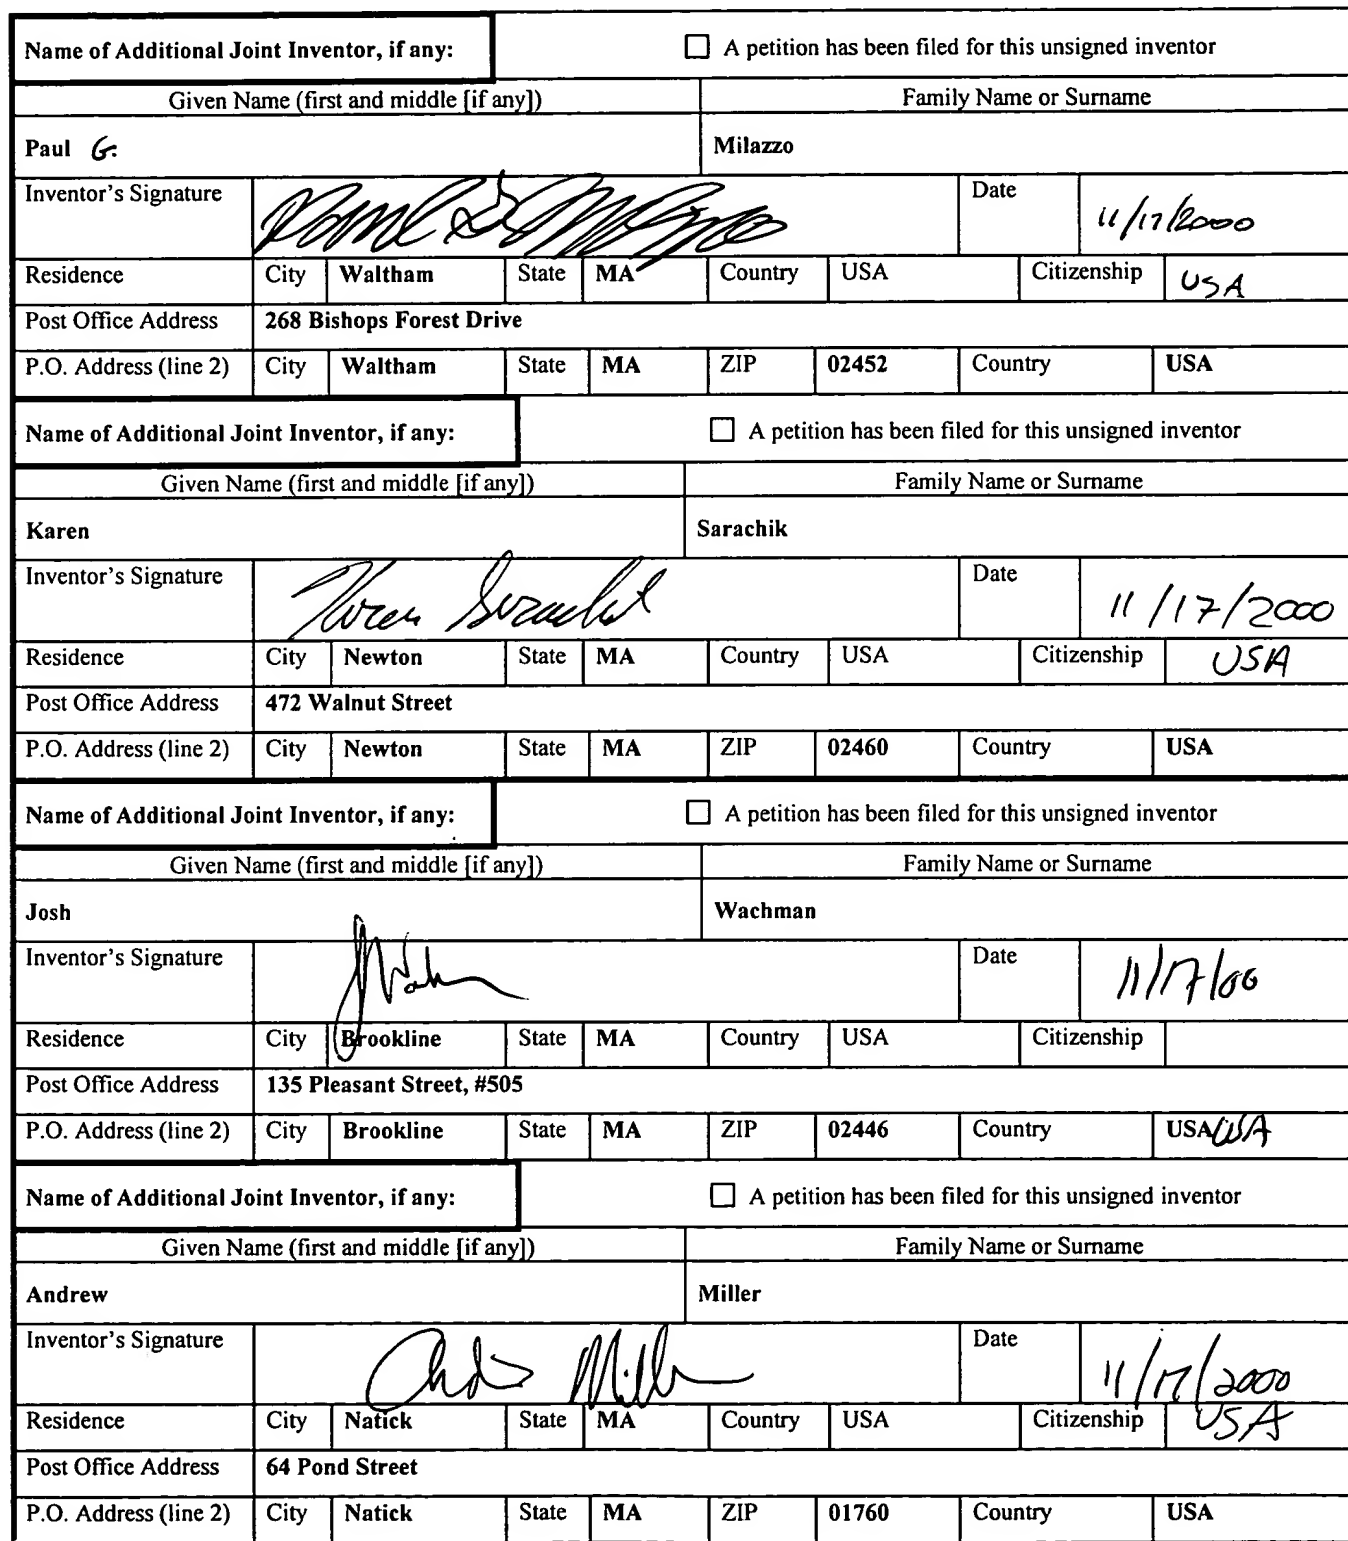 Name of Additional Joint Inventor, if any: ☐ A petition has been filed for this unsigned inventor
Given Name (first and middle [if any]) Family Name or Surname
Paul G. Milazzo
Inventor's Signature Paul G Milazzo Date 11/17/2000
Residence City Waltham State MA Country USA Citizenship USA
Post Office Address 268 Bishops Forest Drive
P.O. Address (line 2) City Waltham State MA ZIP 02452 Country USA
Name of Additional Joint Inventor, if any: ☐ A petition has been filed for this unsigned inventor
Given Name (first and middle [if any]) Family Name or Surname
Karen Sarachik
Inventor's Signature Karen Sarachik Date 11/17/2000
Residence City Newton State MA Country USA Citizenship USA
Post Office Address 472 Walnut Street
P.O. Address (line 2) City Newton State MA ZIP 02460 Country USA
Name of Additional Joint Inventor, if any: ☐ A petition has been filed for this unsigned inventor
Given Name (first and middle [if any]) Family Name or Surname
Josh Wachman
Inventor's Signature Date 11/17/00
Residence City Brookline State MA Country USA Citizenship
Post Office Address 135 Pleasant Street, #505
P.O. Address (line 2) City Brookline State MA ZIP 02446 Country USA USA
Name of Additional Joint Inventor, if any: ☐ A petition has been filed for this unsigned inventor
Given Name (first and middle [if any]) Family Name or Surname
Andrew Miller
Inventor's Signature Andrew Miller Date 11/17/2000
Residence City Natick State MA Country USA Citizenship USA
Post Office Address 64 Pond Street
P.O. Address (line 2) City Natick State MA ZIP 01760 Country USA